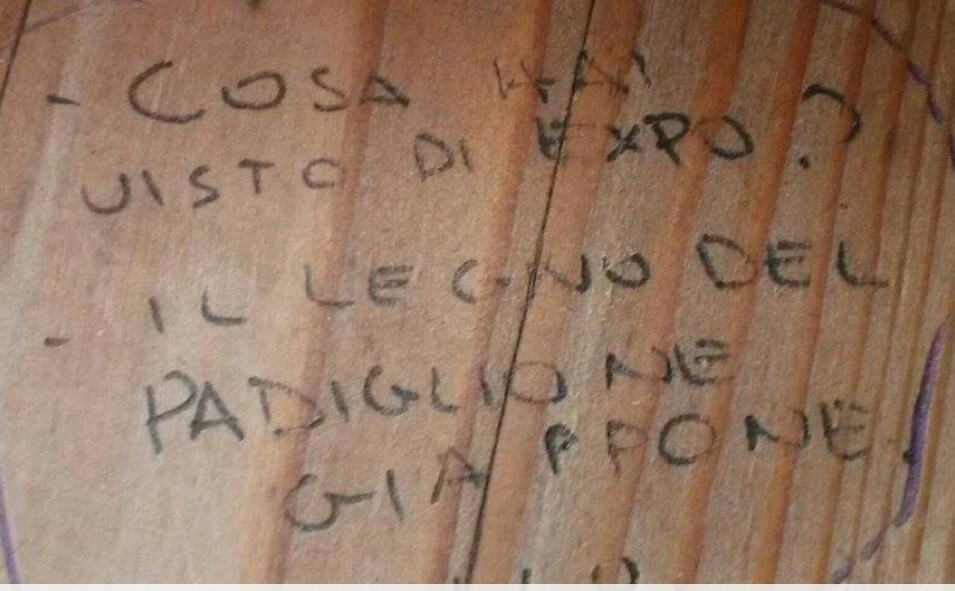 - COSA HAI
VISTO DI EXPO?
- IL LEGNO DEL
PADIGLIONE
GIAPPONE